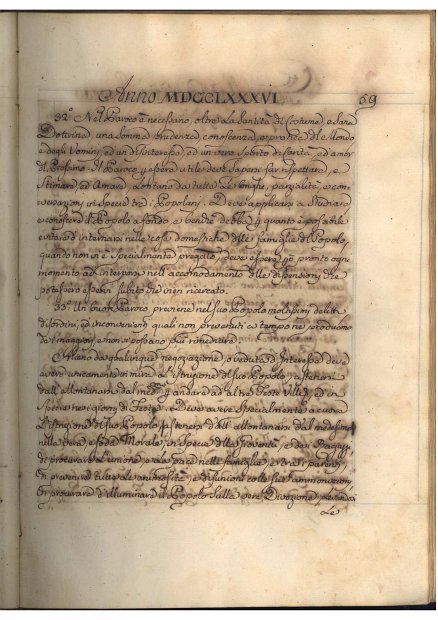 Anno MDCCLXXXVI. 59
32.° Nel Paroco è necessario, oltre la Santità di costume, e sana
Dottrina, una somma prudenza, conoscenza, e pratica del Mondo
e degli Uomini, ed un Disinteresse, ed un vero Spirito di Carità, ed amor
del Prossimo. Il Paroco p essere utile deve sapersi far rispettare, e
stimare, ed amare, lontano da tutte le brighe, parzialità, e con-
versazioni in specie trà i Popolani. Deve applicarsi a studiare
e conoscere il Popolo a fondo, e benchè debba p quanto è possibile
evitare d'internarsi nelle cose domestiche delle famiglie del Popolo,
quando non vi è specialmente pregato, deve essere pronto ogni
momento ad interporsi nell'accomodamento delle dispensioni che
potessero esservi subito che vien ricercato.
33.° Un buon Paroco, previene nel suo Popolo moltissimi delitti
disordini, ed inconvenienti quali non prevenuti a tempo ne producono
de' maggiori, e non vi possano più rimediare.
Alieno da qualunque negoziazione, o veduta d'Interesse deve
avere unicamente in mira l'istruzione del suo Popolo, e tenersi
dall'allontanarsi dal med.° p andare ad altre Feste Ville, ed in
specie nei giorni di Festa. Deve avere specialmente a cuore
l'istruzione del suo Popolo, astenersi dall'allontanarsi dal medesimo
nella vera, e soda Morale, in specie della Gioventù, e dei Ragazzi,
di procurare l'unione, e la pace nelle famiglie, e tra i parenti,
di prevenire tutte le animosità, e disunioni colle sue ammonizioni
di procurare d'illuminare il Popolo sulla vera Divozione,
Le